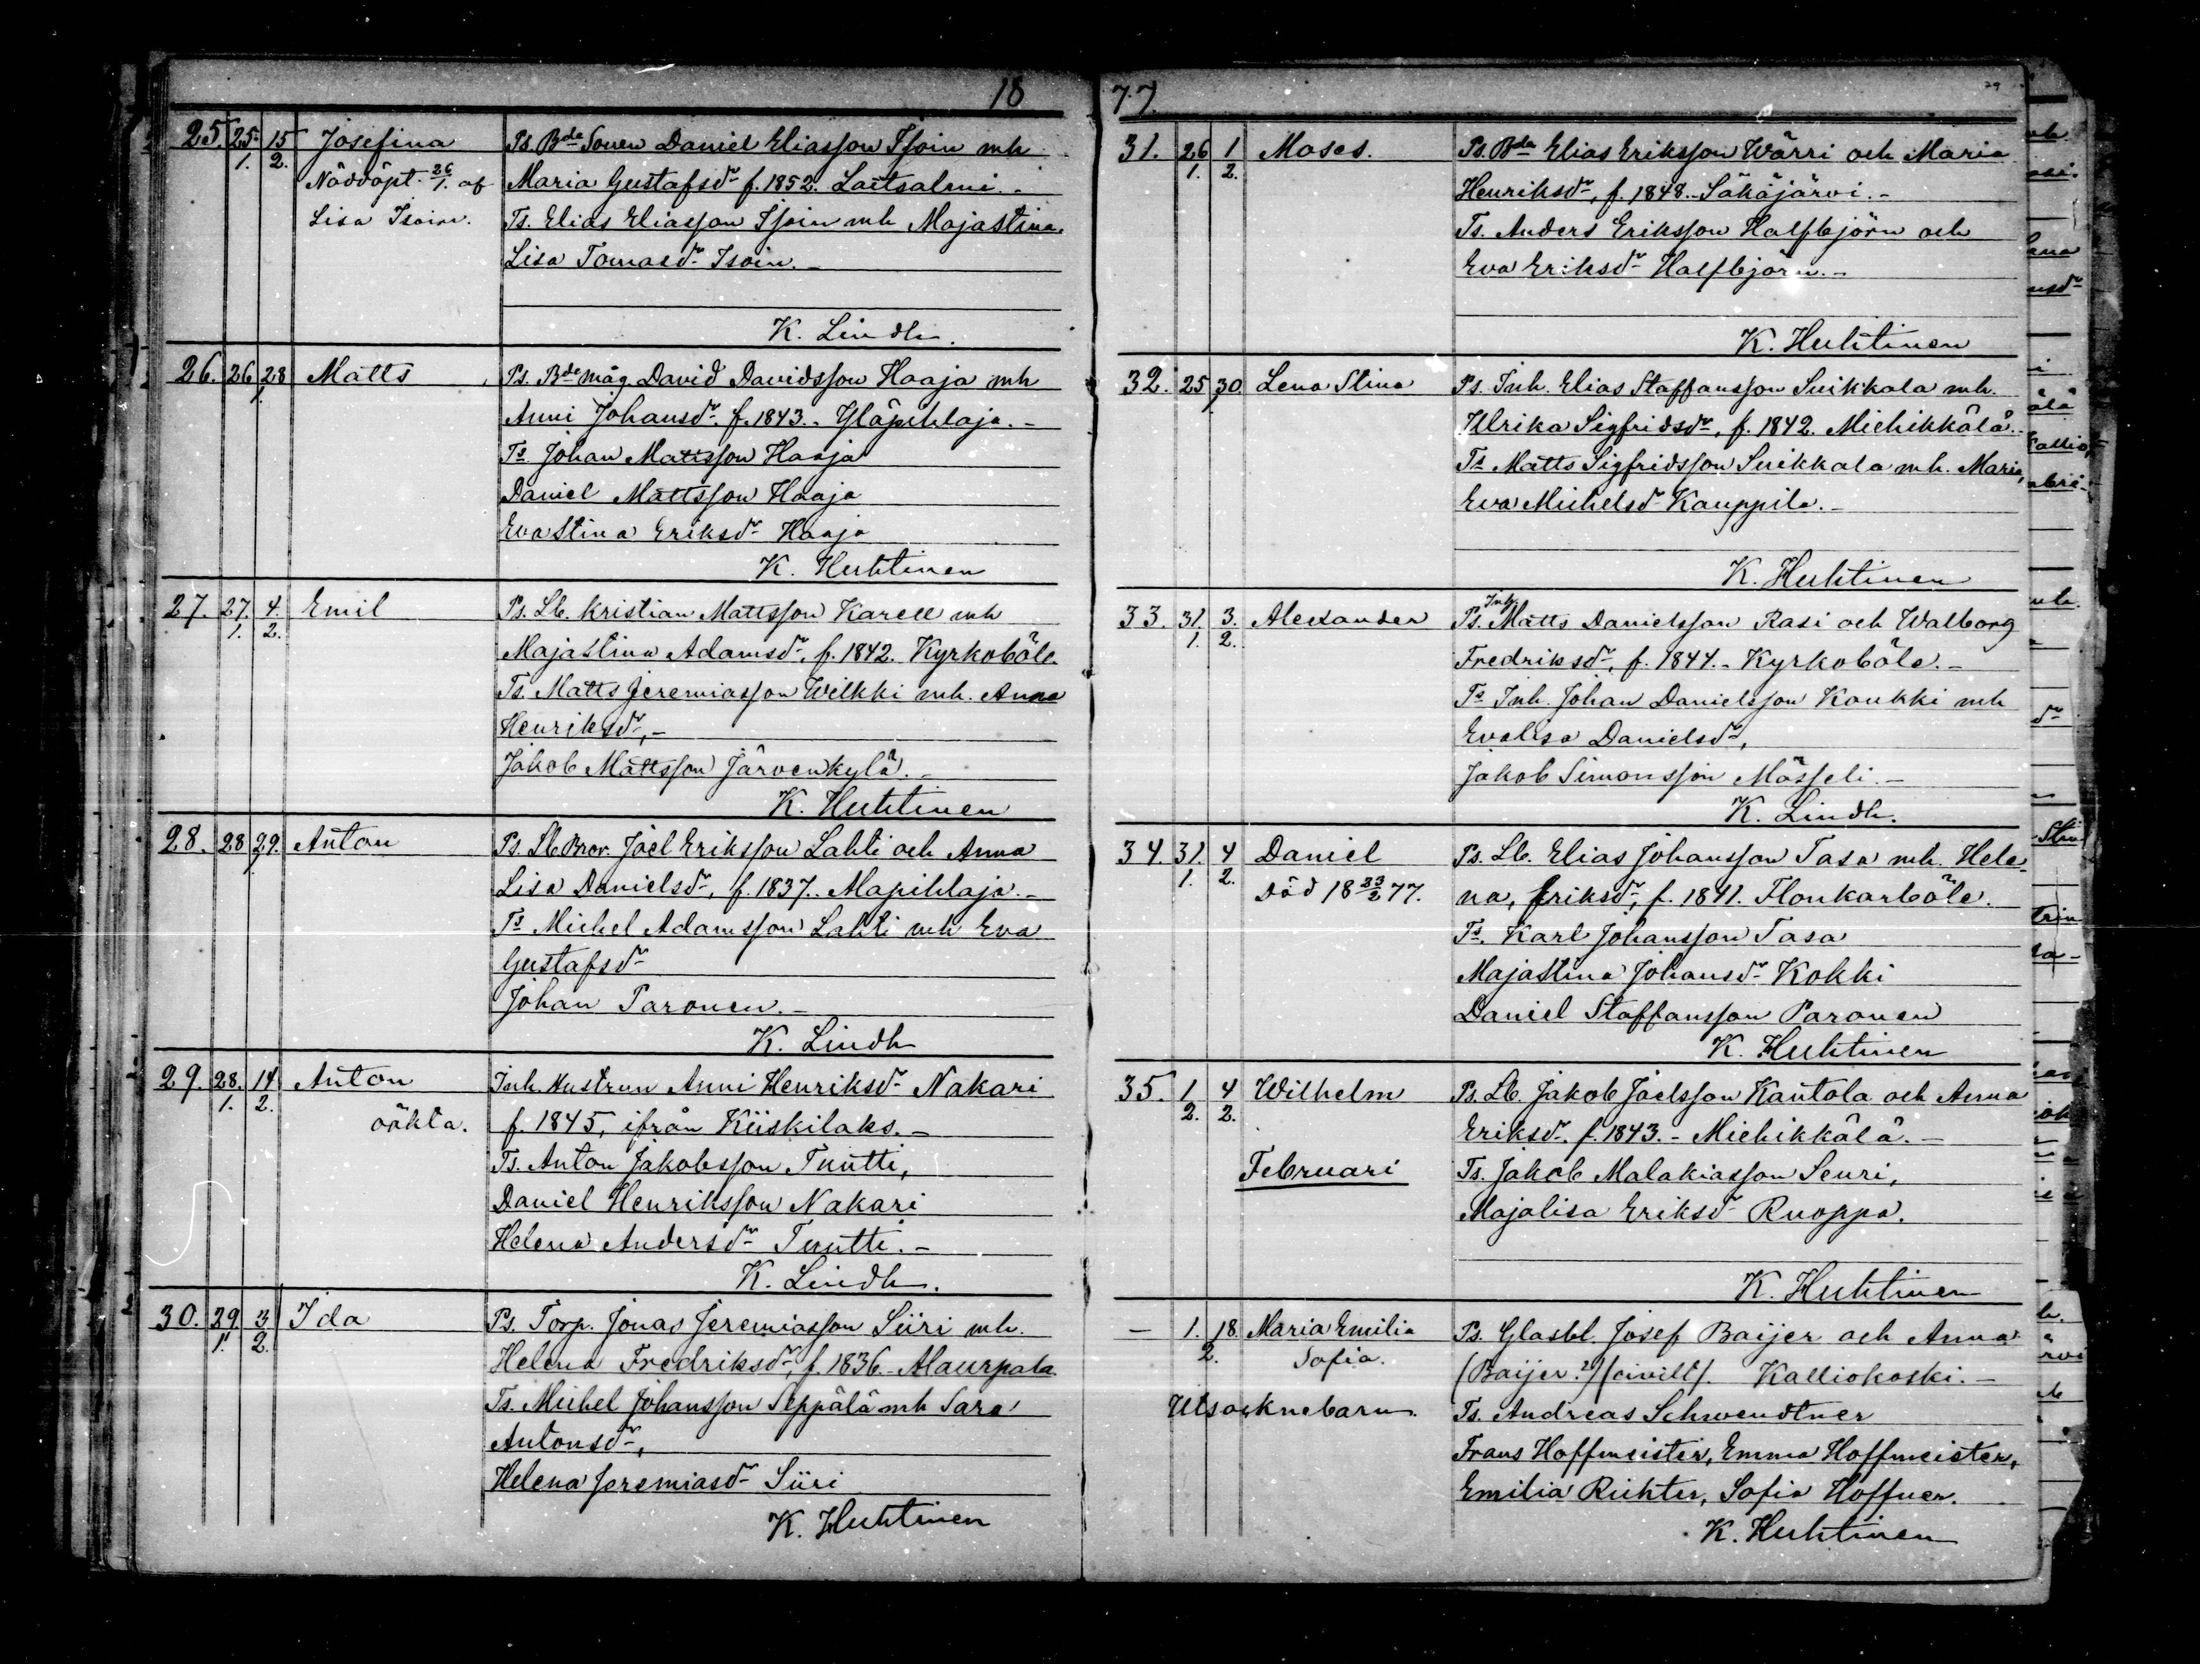 18
25. 25. 15 Josefina Ps. Bde Sonen Daniel Eliasson Isoin mh
1. 2. Nöddöpt 26/1. af Maria Gustafsdr f. 1852. Laitsalmi. -
Lisa Isoin. Ts. Elias Eliasson Isoin mh Majastina.
Lisa Tomasdr Isoin. -
K. Lindh.
26. 26 28 Matts Ps. Bde måg David Davidsson Haaja mh
1. Anni Johansdr. f. 1843. - Yläpihlaja. -
Ts Johan Mattsson Haaja
Daniel Mattsson Haaja
Evastina Eriksdr Haaja
K. Huhtinen
27. 27. 4. Emil Ps. Lb. Kristian Mattsson Karell mh
1. 2. Majastina Adamsdr, f. 1842. Kyrkoböle.
Ts. Matts Jeremiasson Wilkki mh. Anna
Henriksdr, -
Jakob Mattsson Järvenkylä. -
K. Huhtinen
28. 28 29. Anton Ps. Lb Bror. Joel Eriksson Lahti och Anna
1. Lisa Danielsdr, f. 1837. Alapihlaja. -
Ts Michel Adamsson Lahti mh Eva
Gustafsdr
Johan Paronen. -
K. Lindh
29. 28. 14 Anton Inh. Hustrun Anni Henriksdr Nakari
1. 2. oäkta. f. 1845, ifrån Kiiskilaks. -
Ts. Anton Jakobsson Tuutti,
Daniel Henriksson Nakari
Helena Andersdr Tuutti. -
K. Lindh.
30. 29 3 Ida Ps. Torp. Jonas Jeremiasson Siiri mh.
1. 2. Helena Fredriksdr, f. 1836. Alaurpala.
Ts. Michel Johansson Seppälä mh Sara
Antonsdr,
Helena Jeremiasdr Siiri
K. Huhtinen
77.
31. 26 1 Moses. Ps. Bde Elias Eriksson Wärri och Maria
1. 2. Henriksdr, f. 1848. Säkäjärvi. -
Ts. Anders Eriksson Halfbjörn och
Eva Eriksdr Halfbjörn. -
K. Huhtinen
32. 25 30. Lena Stina Ps. Inh. Elias Staffansson Suikkala mh.
1. Ulrika Sigfridsdr, f. 1842. Miehikkälä.
Ts Matts Sigfridsson Suikkala mh. Maria,
Eva Michelsdr Kauppila. -
K. Huhtinen
33. 31. 3. Alexander Ps. Inh. Matts Danielsson Rasi och Walborg
1. 2. Fredriksdr, f. 1844. - Kyrkoböle. -
Ts Inh. Johan Danielsson Koukki mh
Evalisa Danielsdr,
Jakob Simonsson Mässeli. -
K. Lindh.
34 31. 4 Daniel Ps. Lb. Elias Johansson Tasa mh. Hele-
1. 2. Död 18 23/2 77. na, Eriksdr, f. 1841. Flonkarböle.
Ts. Karl Johansson Tasa
Majastina Johansdr Kokki
Daniel Staffansson Paronen
K. Huhtinen
35. 1 4 Wilhelm Ps. Lb. Jakob Joelsson Kautola och Anna
2. 2. Eriksdr. f. 1843. - Miehikkälä. -
Februari Ts. Jakob Malakiasson Seuri,
Majalisa Eriksdr Ruoppa.
K. Huhtinen
- 1. 18. Maria Emilia Ps. Glasbl. Josef Baijer och Anna
2. Sofia. (Baijer?) (civilt). Kalliokoski. -
Utsocknebarn. Ts. Andreas Schwendtner
Frans Hoffmeister, Emma Hoffmeister,
Emilia Richter, Sofia Hoffner.
K. Huhtinen